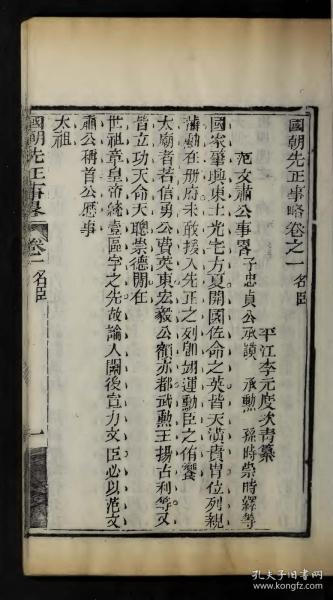 國朝先正事略卷之一 名臣
平江李元度次青纂
范文肅公事略 子忠貞公承謨 承勳 孫時崇時繹等
國家肇興東土光宅方夏開國佐命之英皆天潢貴胄位列親
藩勳在册府未敢援入先正之列即翊運勳臣之侑饗
太廟者若信勇公費英東宏毅公額亦都武勳王揚古利等又
皆立功天命天聰崇德間在
世祖章皇帝統壹區宇之先故論人關後宣力文臣必以范文
肅公稱首公歷事
太祖
國朝先正事略
卷一 名臣
一
孔夫子旧书网
www.kongfz.com